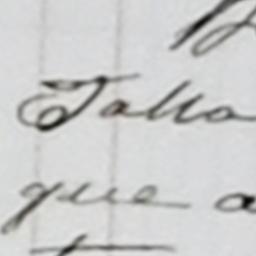 Falla
que a